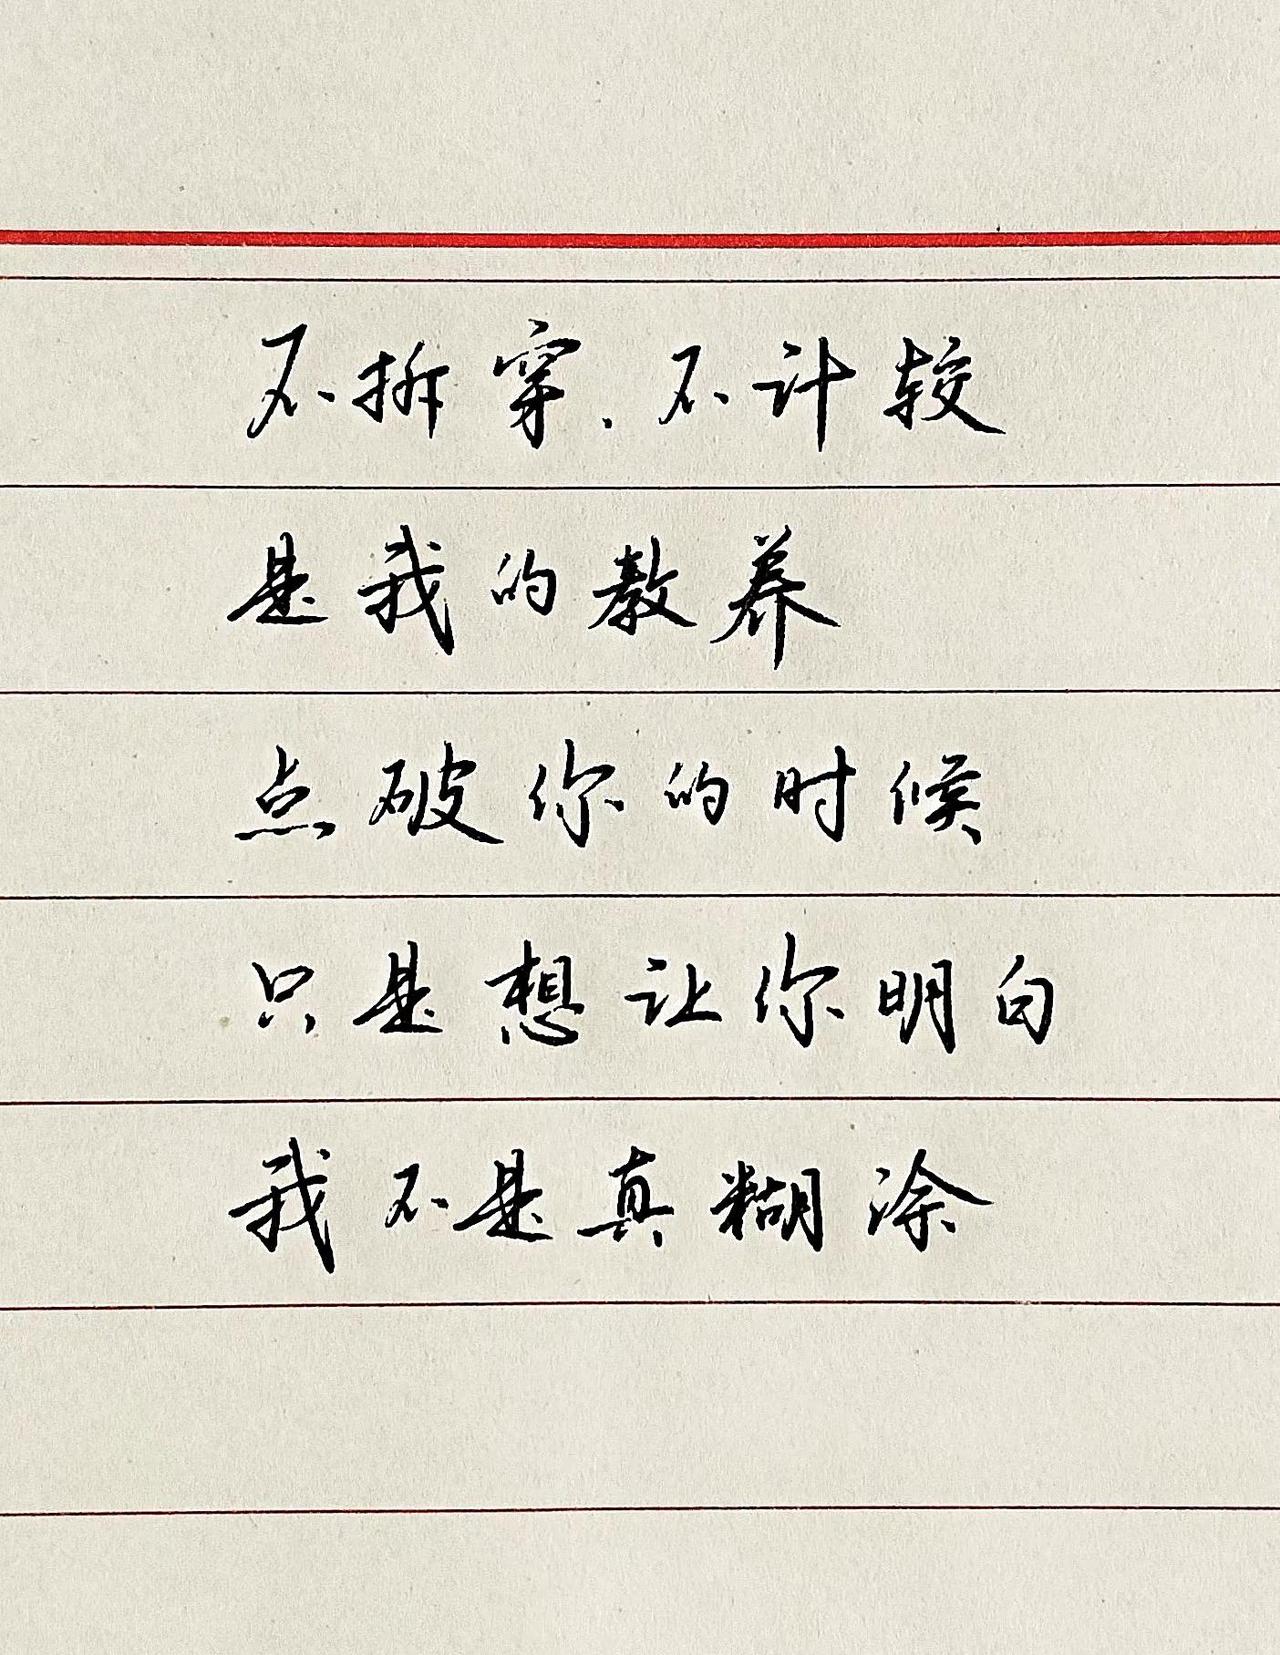 不拆穿、不计较
是我的教养
点破你的时候
只是想让你明白
我不是真糊涂